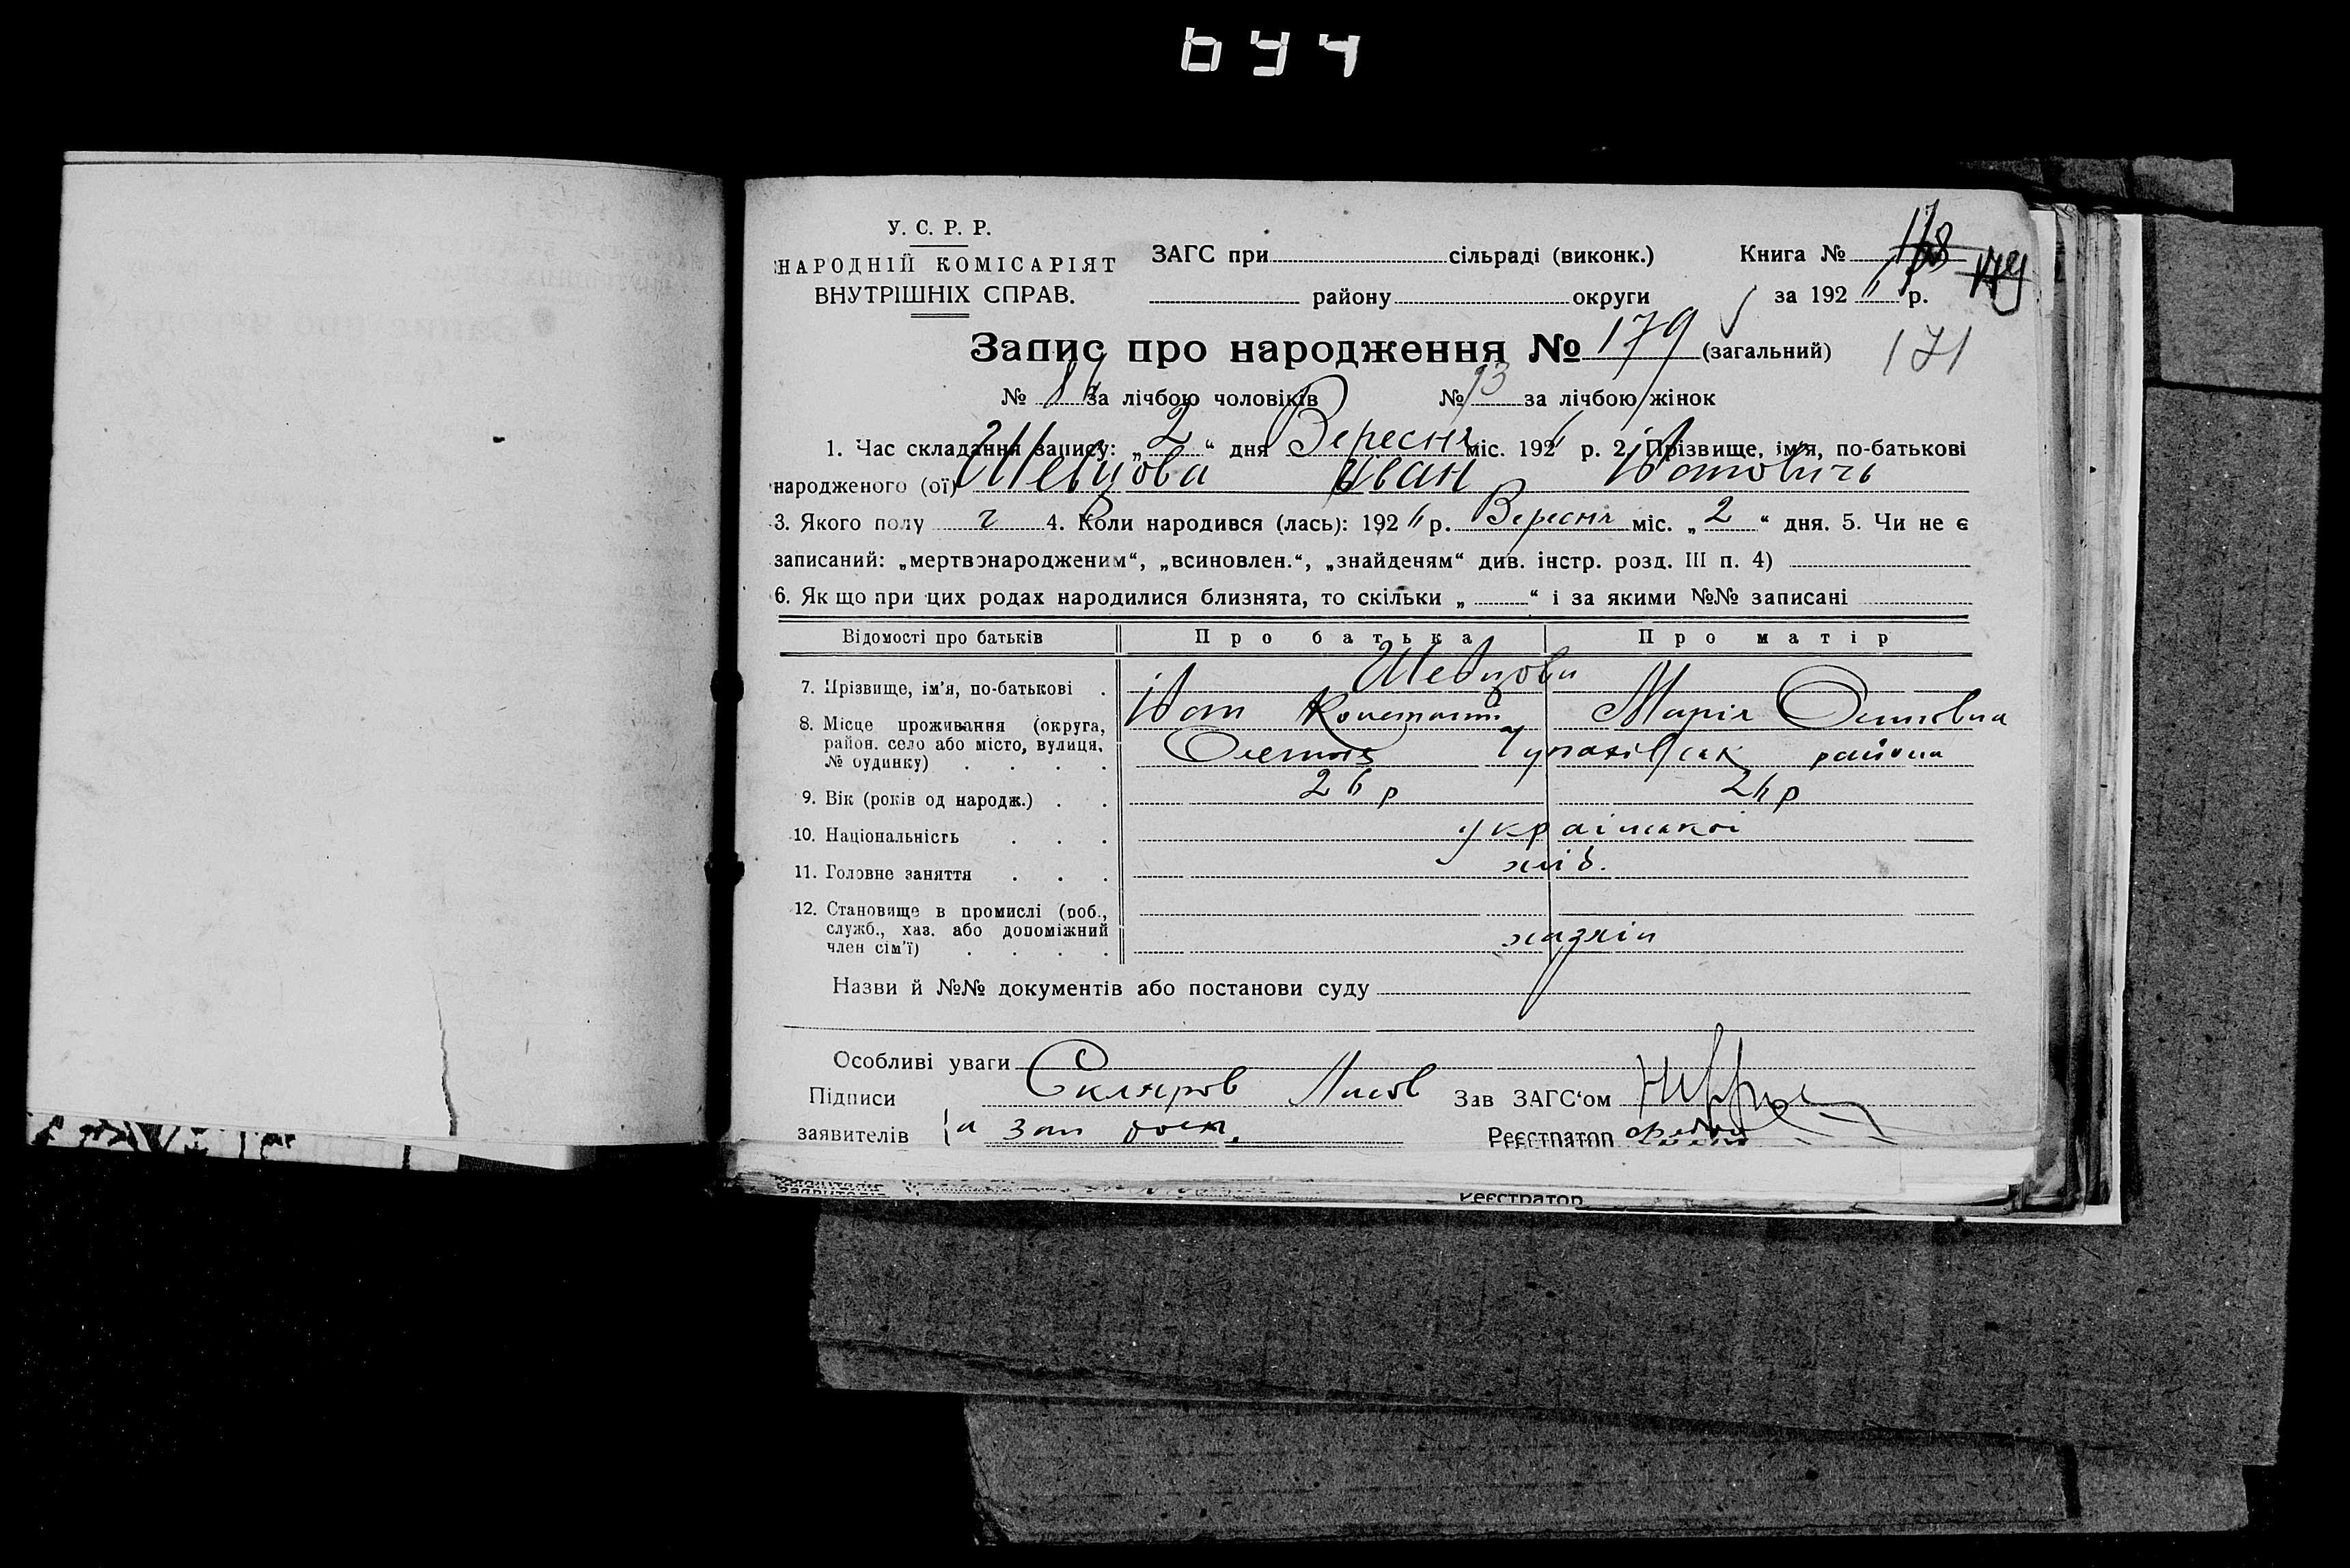 У. С. Р. Р.
НАРОДНІЙ КОМІСАРІЯТ
ВНУТРІШНІХ СПРАВ.
ЗАГС при сільраді (виконк.)
району округи
Книга №
за 192 р.
171
Запис про народження № 179 (загальний)
№ за лічбою чоловіків № 93 за лічбою жінок
1. Час складання запису: „2“ дня Вересня міс. 1926 р. 2. Прізвище, ім'я, по-батькові
народженого (ої) Шевцова Іван Іванович
3. Якого полу ч 4. Коли народився (лась): 1926 р. Вересня міс. „2“ дня. 5. Чи не є
записаний: „мертвонародженим“, „всиновлен.“, „знайденям“ див. інстр. розд. III п. 4)
6. Як що при цих родах народилися близнята, то скільки „ “ і за якими №№ записані
Відомості про батьків Про батька Про матір
7. Прізвище, ім'я, по-батькові Шевцови
Іван Констант Марія
8. Місце проживання (округа, район. село або місто, вулиця, № будинку) района
9. Вік (років од народж.) 26 р 26 р
10. Національність української
11. Головне заняття хліб.
12. Становище в промислі (роб., служб., хаз. або допоміжний член сім'ї) хазяїн
Назви й №№ документів або постанови суду
Особливі уваги
Підписи Скляров Зав ЗАГС'ом
заявителів Реєстратор
Реєстратор